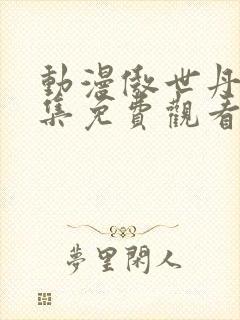 動漫傲世丹
集免費觀看
夢里閑人